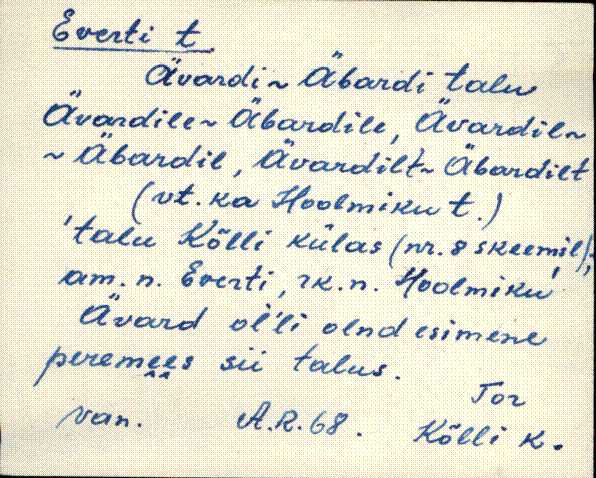 Everti t.
Ävardi ~ Äbardi talu
Ävardile ~ Äbardile, Ävardil ~
~ Äbardil, Ävardilt ~ Äbardilt
(vt. ka Hoolmiku t.)
'talu Kõlli külas (nr. 8 skeemil);
am. n. Everti, rk. n. Hoolmiku'
Ävard ol'li olnd esimene
peremees sii talus.
Tor
van. A.R. 68. Kõlli k.